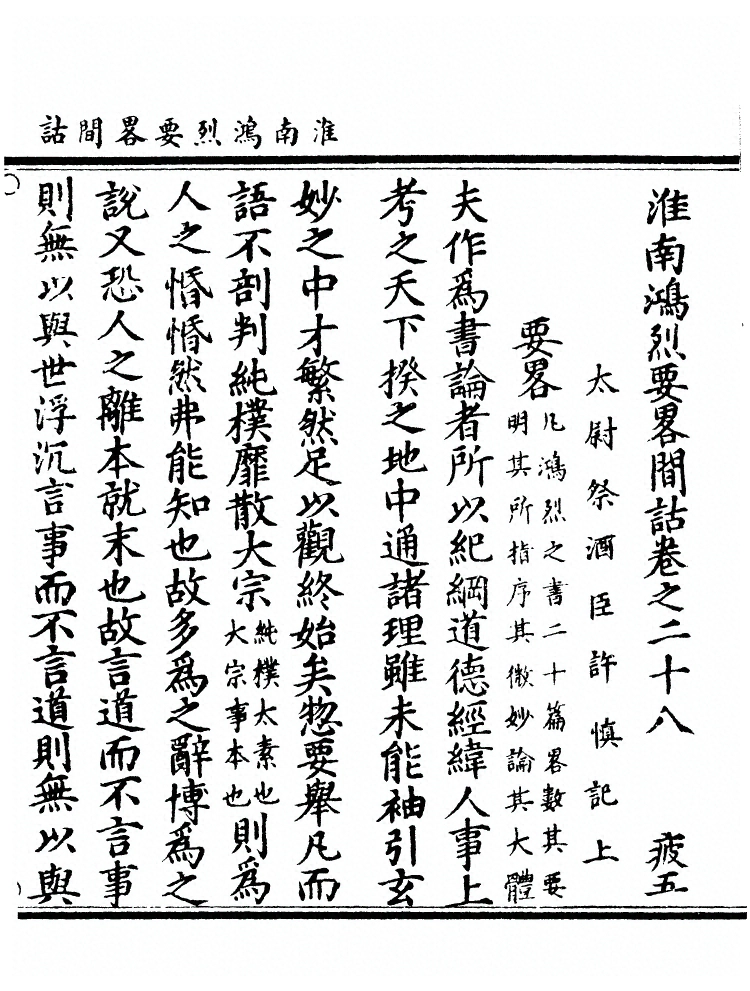 淮南鴻烈要畧間詁
淮南鴻烈要畧間詁卷之二十八 疲五
太尉祭酒臣許慎記上
要畧 凡鴻烈之書二十篇畧數其要
明其所指序其微妙論其大體
夫作為書論者所以紀綱道德經緯人事上
考之天下揆之地中通諸理雖未能袖引玄
妙之中才繁然足以觀終始矣惣要舉凡而
語不剖判純樸靡散大宗 純樸太素也
大宗事本也 則為
人之惛惛然弗能知也故多為之辭博為之
說又恐人之離本就末也故言道而不言事
則無以與世浮沉言事而不言道則無以與